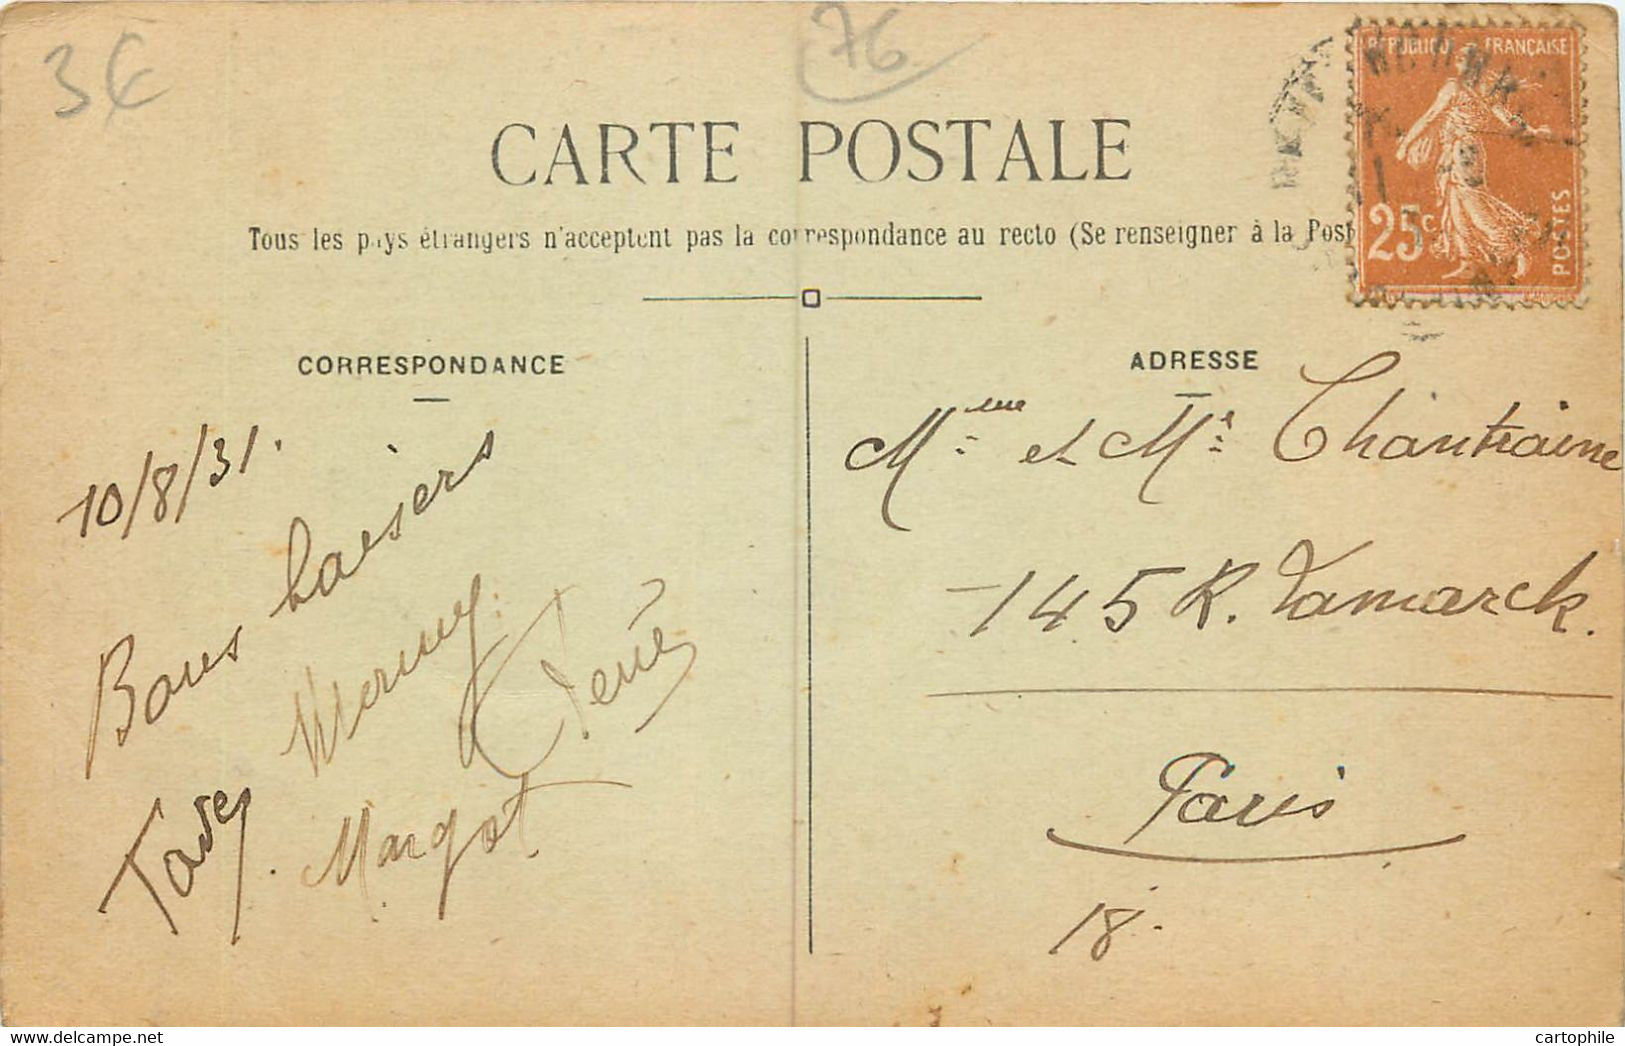 3€
76
RÉPUBLIQUE FRANÇAISE
25c
POSTES
CARTE POSTALE
Tous les pays étrangers n'acceptent pas la correspondance au recto (Se renseigner à la Post
CORRESPONDANCE
10/8/31.
Bons baisers
Margot
ADRESSE
Mme et Mr Chantraine
145 R. Lamarck.
Paris
18.
cartophile